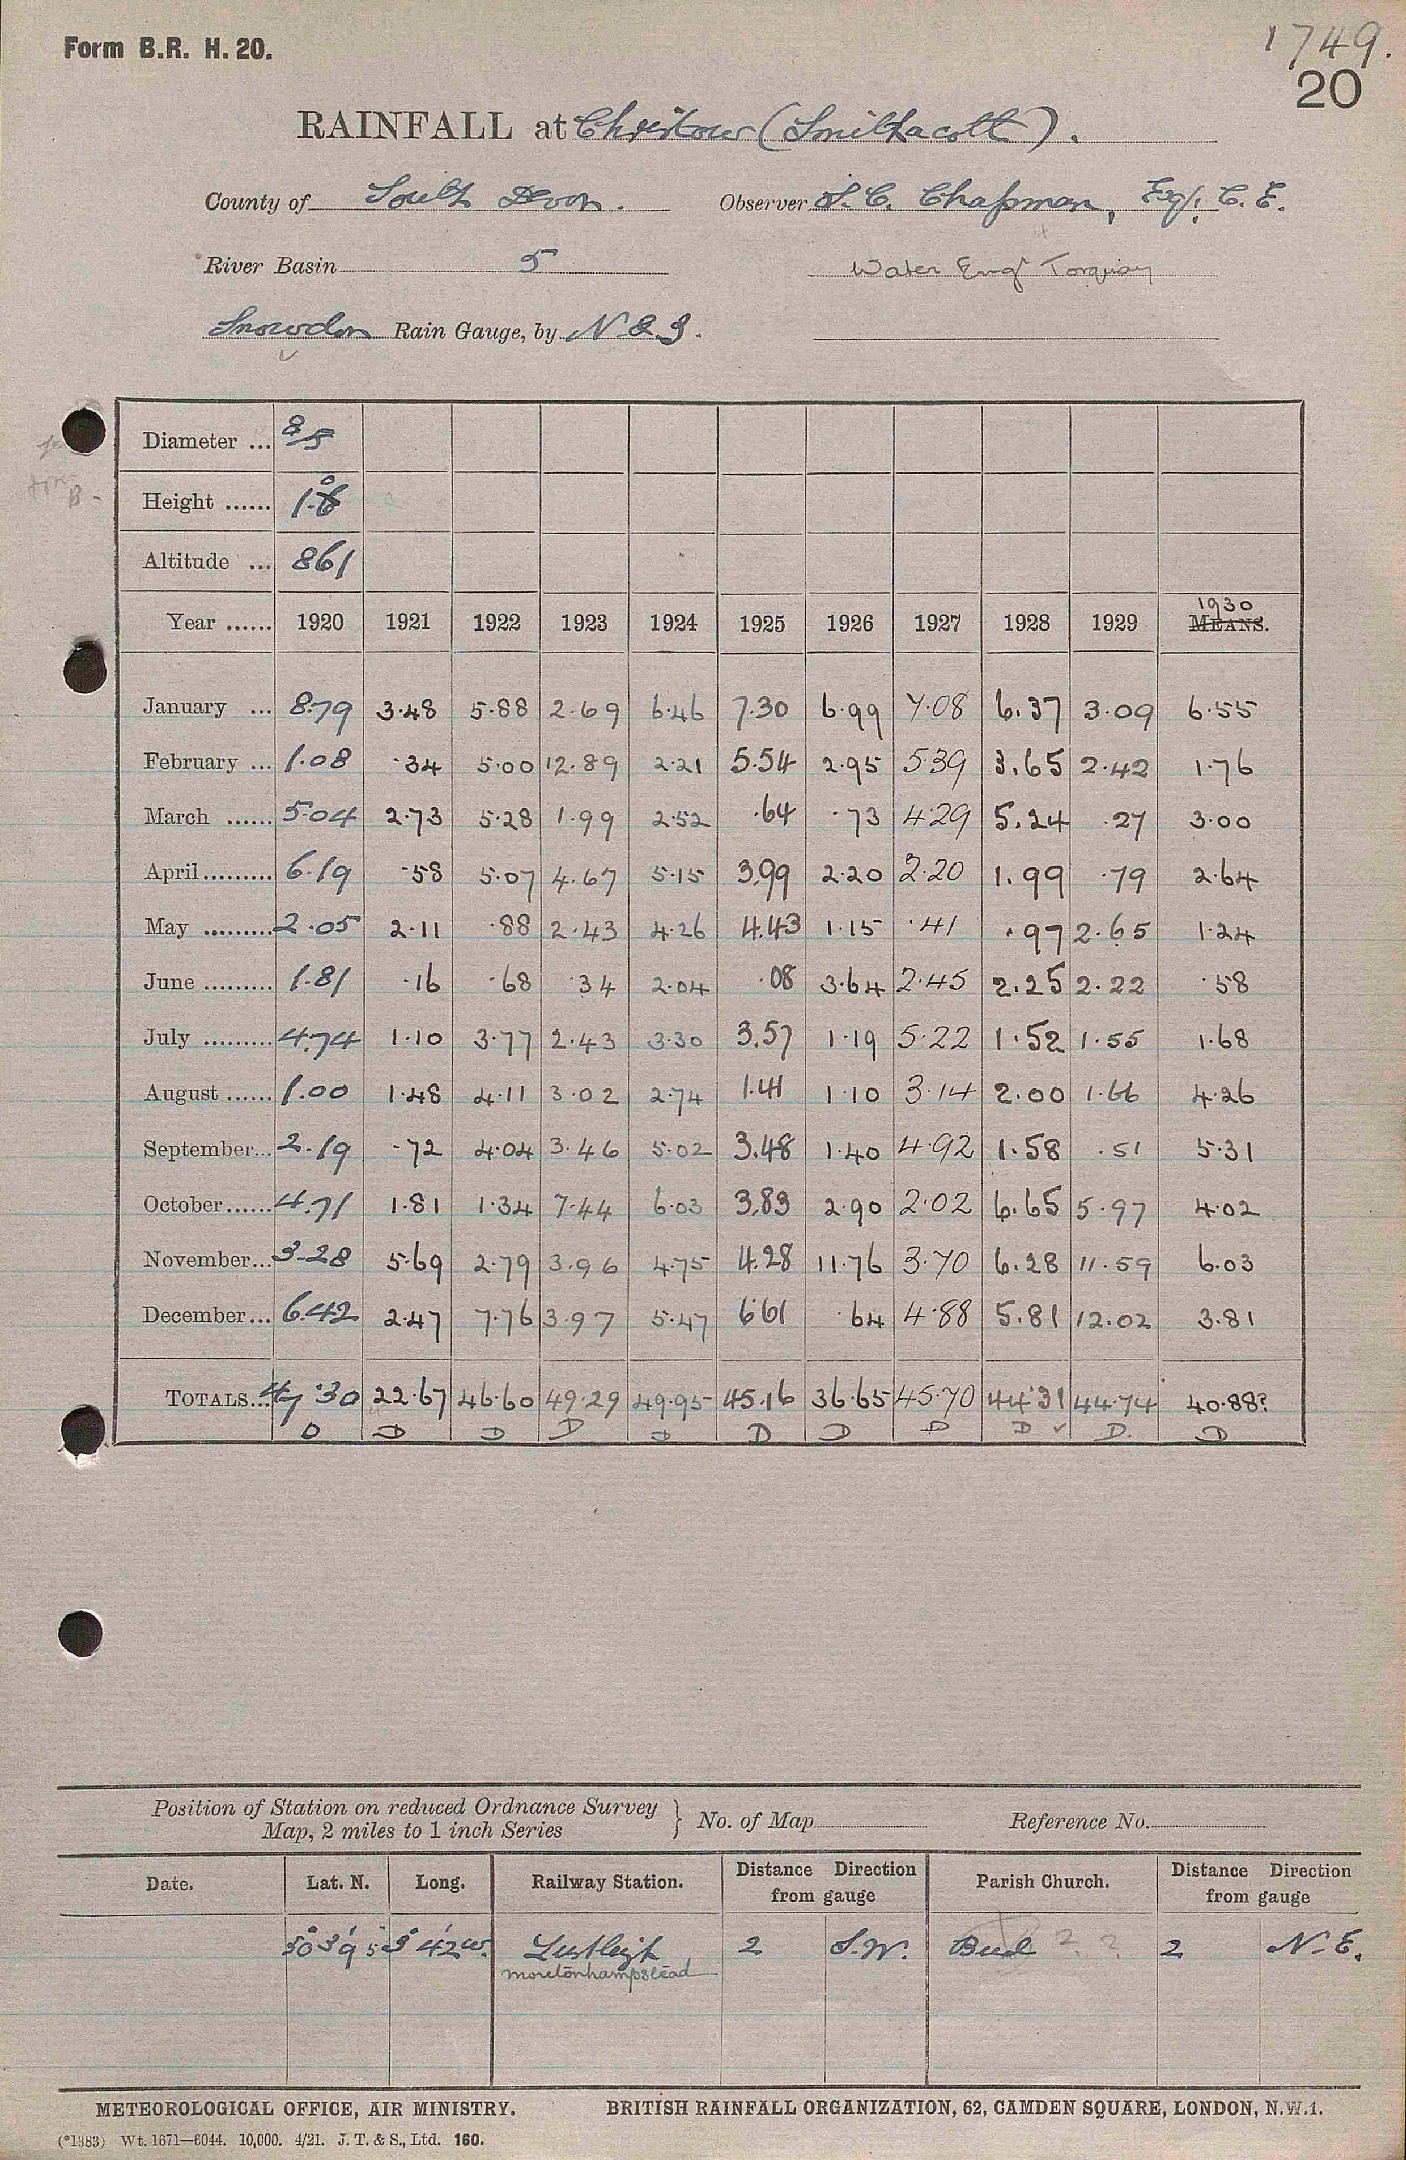 Form B.R. H. 20.
1749.
20
RAINFALL at Christow (Smithacott).
County of South Devon. Observer S. C. Chapman, Esq., C. E.
River Basin 5 Water Engr Torquay
Snowdon Rain Gauge, by N & Z.
Diameter ... 8/5
Height ...... 1.0
Altitude ... 861
Year ...... 1920 1921 1922 1923 1924 1925 1926 1927 1928 1929 1930 MEANS.
January ... 8.79 3.48 5.88 2.69 6.46 7.30 6.99 7.08 6.37 3.09 6.55
February ... 1.08 .34 5.00 12.89 2.21 5.54 2.95 5.39 3.65 2.42 1.76
March ...... 5.04 2.73 5.28 1.99 2.52 .64 .73 4.29 5.24 .27 3.00
April ......... 6.19 .58 5.07 4.67 5.15 3.99 2.20 2.20 1.99 .79 2.64
May ......... 2.05 2.11 .88 2.43 4.26 4.43 1.15 .41 .97 2.65 1.24
June ......... 1.81 .16 .68 .34 2.04 .08 3.64 2.45 2.25 2.22 .58
July ......... 4.74 1.10 3.77 2.43 3.30 3.57 1.19 5.22 1.52 1.55 1.68
August ...... 1.00 1.48 4.11 3.02 2.74 1.41 1.10 3.14 2.00 1.66 4.26
September... 2.19 .72 4.04 3.46 5.02 3.48 1.40 4.92 1.58 .51 5.31
October...... 4.71 1.81 1.34 7.44 6.03 3.83 2.90 2.02 6.65 5.97 4.02
November... 3.28 5.69 2.79 3.96 4.75 4.28 11.76 3.70 6.28 11.59 6.03
December... 6.42 2.47 7.76 3.97 5.47 6.61 .64 4.88 5.81 12.02 3.81
TOTALS... 47.30 22.67 46.60 49.29 49.95 45.16 36.65 45.70 44.31 44.74 40.88?
D D D D D D D D D ✓ D. D
Position of Station on reduced Ordnance Survey Map, 2 miles to 1 inch Series } No. of Map Reference No.
Date. Lat. N. Long. Railway Station. Distance Direction from gauge Parish Church. Distance Direction from gauge
50° 39' 5" 3° 42' W. Lustleigh 2 S.W. ? ? 2 N. E.
moretonhampstead
METEOROLOGICAL OFFICE, AIR MINISTRY. BRITISH RAINFALL ORGANIZATION, 62, CAMDEN SQUARE, LONDON, N.W.1.
(*1383) Wt. 1671—6044. 10,000. 4/21. J. T. & S., Ltd. 160.